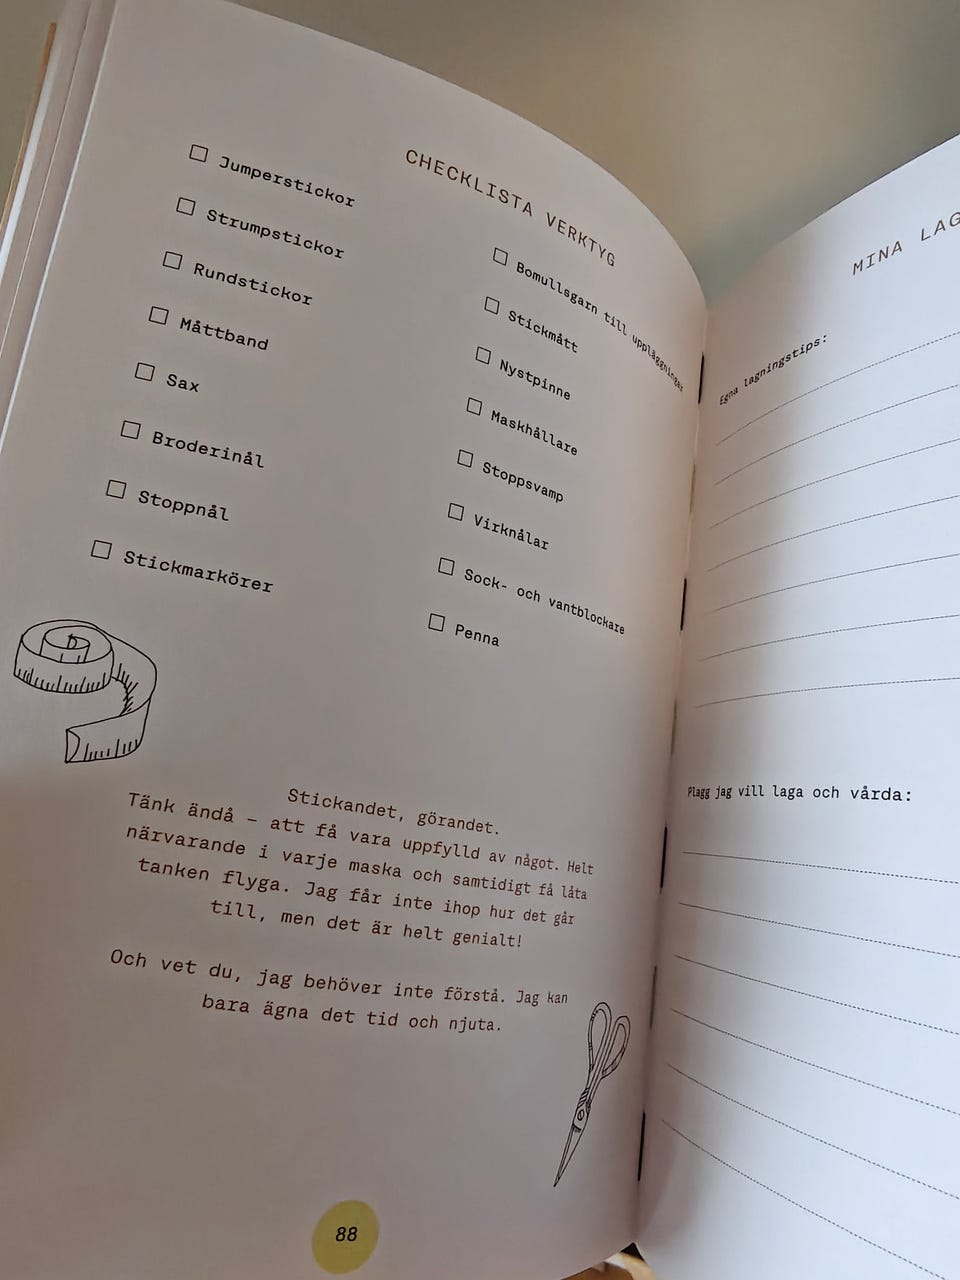 CHECKLISTA VERKTYG
Jumperstickor
Strumpstickor
Rundstickor
Måttband
Sax
Broderinål
Stoppnål
Stickmarkörer
Bomullsgarn till uppläggningar
Stickmått
Nystpinne
Maskhållare
Stoppsvamp
Virknålar
Sock- och vantblockare
Penna
Stickandet, görandet.
Tänk ändå – att få vara uppfylld av något. Helt
närvarande i varje maska och samtidigt få låta
tanken flyga. Jag får inte ihop hur det går
till, men det är helt genialt!
Och vet du, jag behöver inte förstå. Jag kan
bara ägna det tid och njuta.
88
MINA LAG
Egna lagningstips:
Plagg jag vill laga och vårda: